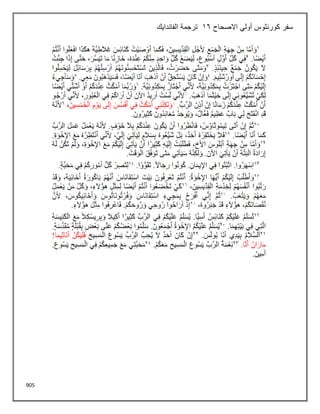 سفر كورنثوس أولي الاصحاح ١٦ ترجمة الفاندايك
١وَأَمَّا مِنْ جِهَةِ الْجَمْعِ لأَجْلِ الْقِدِّيسِينَ، فَكَمَا أَوْصَيْتُ كَنَائِسَ غَلاَطِيَّةَ هكَذَا افْعَلُوا أَنْتُمْ
أَيْضًا. ٢فِي كُلِّ أَوَّلِ أُسْبُوعٍ، لِيَضَعْ كُلُّ وَاحِدٍ مِنْكُمْ عِنْدَهُ، خَازِنًا مَا تَيَسَّرَ، حَتَّى إِذَا جِئْتُ
لاَ يَكُونُ جَمْعٌ حِينَئِذٍ. ٣وَمَتَى حَضَرْتُ، فَالَّذِينَ تَسْتَحْسِنُونَهُمْ أُرْسِلُهُمْ بِرَسَائِلَ لِيَحْمِلُوا
إِحْسَانَكُمْ إِلَى أُورُشَلِيمَ. ٤وَإِنْ كَانَ يَسْتَحِقُّ أَنْ أَذْهَبَ أَنَا أَيْضًا، فَسَيَذْهَبُونَ مَعِي. ٥وَسَأَجِيءُ
إِلَيْكُمْ مَتَى اجْتَزْتُ بِمَكِدُونِيَّةَ، لأَنِّي أَجْتَازُ بِمَكِدُونِيَّةَ. ٦وَرُبَّمَا أَمْكُثُ عِنْدَكُمْ أَوْ أُشَتِّي أَيْضًا
لِكَيْ تُشَيِّعُونِي إِلَى حَيْثُمَا أَذْهَبُ. ٧لأَنِّي لَسْتُ أُرِيدُ الآنَ أَنْ أَرَاكُمْ فِي الْعُبُورِ، لأَنِّي أَرْجُو أَنْ
أَمْكُثَ عِنْدَكُمْ زَمَانًا إِنْ أَذِنَ الرَّبُّ. ٨وَلكِنَّنِي أَمْكُثُ فِي أَفَسُسَ إِلَى يَوْمِ الْخَمْسِينَ، ٩لأَنَّهُ
قَدِ انْفَتَحَ لِي بَابٌ عَظِيمٌ فَعَّالٌ، وَيُوجَدُ مُعَانِدُونَ كَثِيرُونَ.
١٠ثُمَّ إِنْ أَتَى تِيمُوثَاوُسُ، فَانْظُرُوا أَنْ يَكُونَ عِنْدَكُمْ بِلاَ خَوْفٍ. لأَنَّهُ يَعْمَلُ عَمَلَ الرَّبِّ
كَمَا أَنَا أَيْضًا. ١١فَلاَ يَحْتَقِرْهُ أَحَدٌ، بَلْ شَيِّعُوهُ بِسَلاَمٍ لِيَأْتِيَ إِلَيَّ، لأَنِّي أَنْتَظِرُهُ مَعَ الإِخْوَةِ.
١٢وَأَمَّا مِنْ جِهَةِ أَبُلُّوسَ الأَخِ، فَطَلَبْتُ إِلَيْهِ كَثِيرًا أَنْ يَأْتِيَ إِلَيْكُمْ مَعَ الإِخْوَةِ، وَلَمْ تَكُنْ لَهُ
إِرَادَةٌ الْبَتَّةَ أَنْ يَأْتِيَ الآنَ. وَلكِنَّهُ سَيَأْتِي مَتَى تَوَفَّقَ الْوَقْتُ.
١٣اِسْهَرُوا. اثْبُتُوا فِي الإِيمَانِ. كُونُوا رِجَالاً. تَقَوَّوْا. ١٤لِتَصِرْ كُلُّ أُمُورِكُمْ فِي مَحَبَّةٍ.
١٥وَأَطْلُبُ إِلَيْكُمْ أَيُّهَا الإِخْوَةُ: أَنْتُمْ تَعْرِفُونَ بَيْتَ اسْتِفَانَاسَ أَنَّهُمْ بَاكُورَةُ أَخَائِيَةَ، وَقَدْ
رَتَّبُوا أَنْفُسَهُمْ لِخِدْمَةِ الْقِدِّيسِينَ، ١٦كَيْ تَخْضَعُوا أَنْتُمْ أَيْضًا لِمِثْلِ هؤُلاَءِ، وَكُلِّ مَنْ يَعْمَلُ
مَعَهُمْ وَيَتْعَبُ. ١٧ثُمَّ إِنِّي أَفْرَحُ بِمَجِيءِ اسْتِفَانَاسَ وَفُرْتُونَاتُوسَ وَأَخَائِيكُوسَ، لأَنَّ
نُقْصَانَكُمْ، هؤُلاَءِ قَدْ جَبَرُوهُ، ١٨إِذْ أَرَاحُوا رُوحِي وَرُوحَكُمْ. فَاعْرِفُوا مِثْلَ هؤُلاَءِ.
١٩تُسَلِّمُ عَلَيْكُمْ كَنَائِسُ أَسِيَّا. يُسَلِّمُ عَلَيْكُمْ فِي الرَّبِّ كَثِيرًا أَكِيلاَ وَبِرِيسْكِلاَّ مَعَ الْكَنِيسَةِ
الَّتِي فِي بَيْتِهِمَا. ٢٠يُسَلِّمُ عَلَيْكُمُ الإِخْوَةُ أَجْمَعُونَ. سَلِّمُوا بَعْضُكُمْ عَلَى بَعْضٍ بِقُبْلَةٍ مُقَدَّسَةٍ.
٢١اَلسَّلاَمُ بِيَدِي أَنَا بُولُسَ. ٢٢إِنْ كَانَ أَحَدٌ لاَ يُحِبُّ الرَّبَّ يَسُوعَ الْمَسِيحَ فَلْيَكُنْ أَنَاثِيمَا!
مَارَانْ أَثَا. ٢٣نِعْمَةُ الرَّبِّ يَسُوعَ الْمَسِيحِ مَعَكُمْ. ٢٤مَحَبَّتِي مَعَ جَمِيعِكُمْ فِي الْمَسِيحِ يَسُوعَ.
آمِينَ.
905